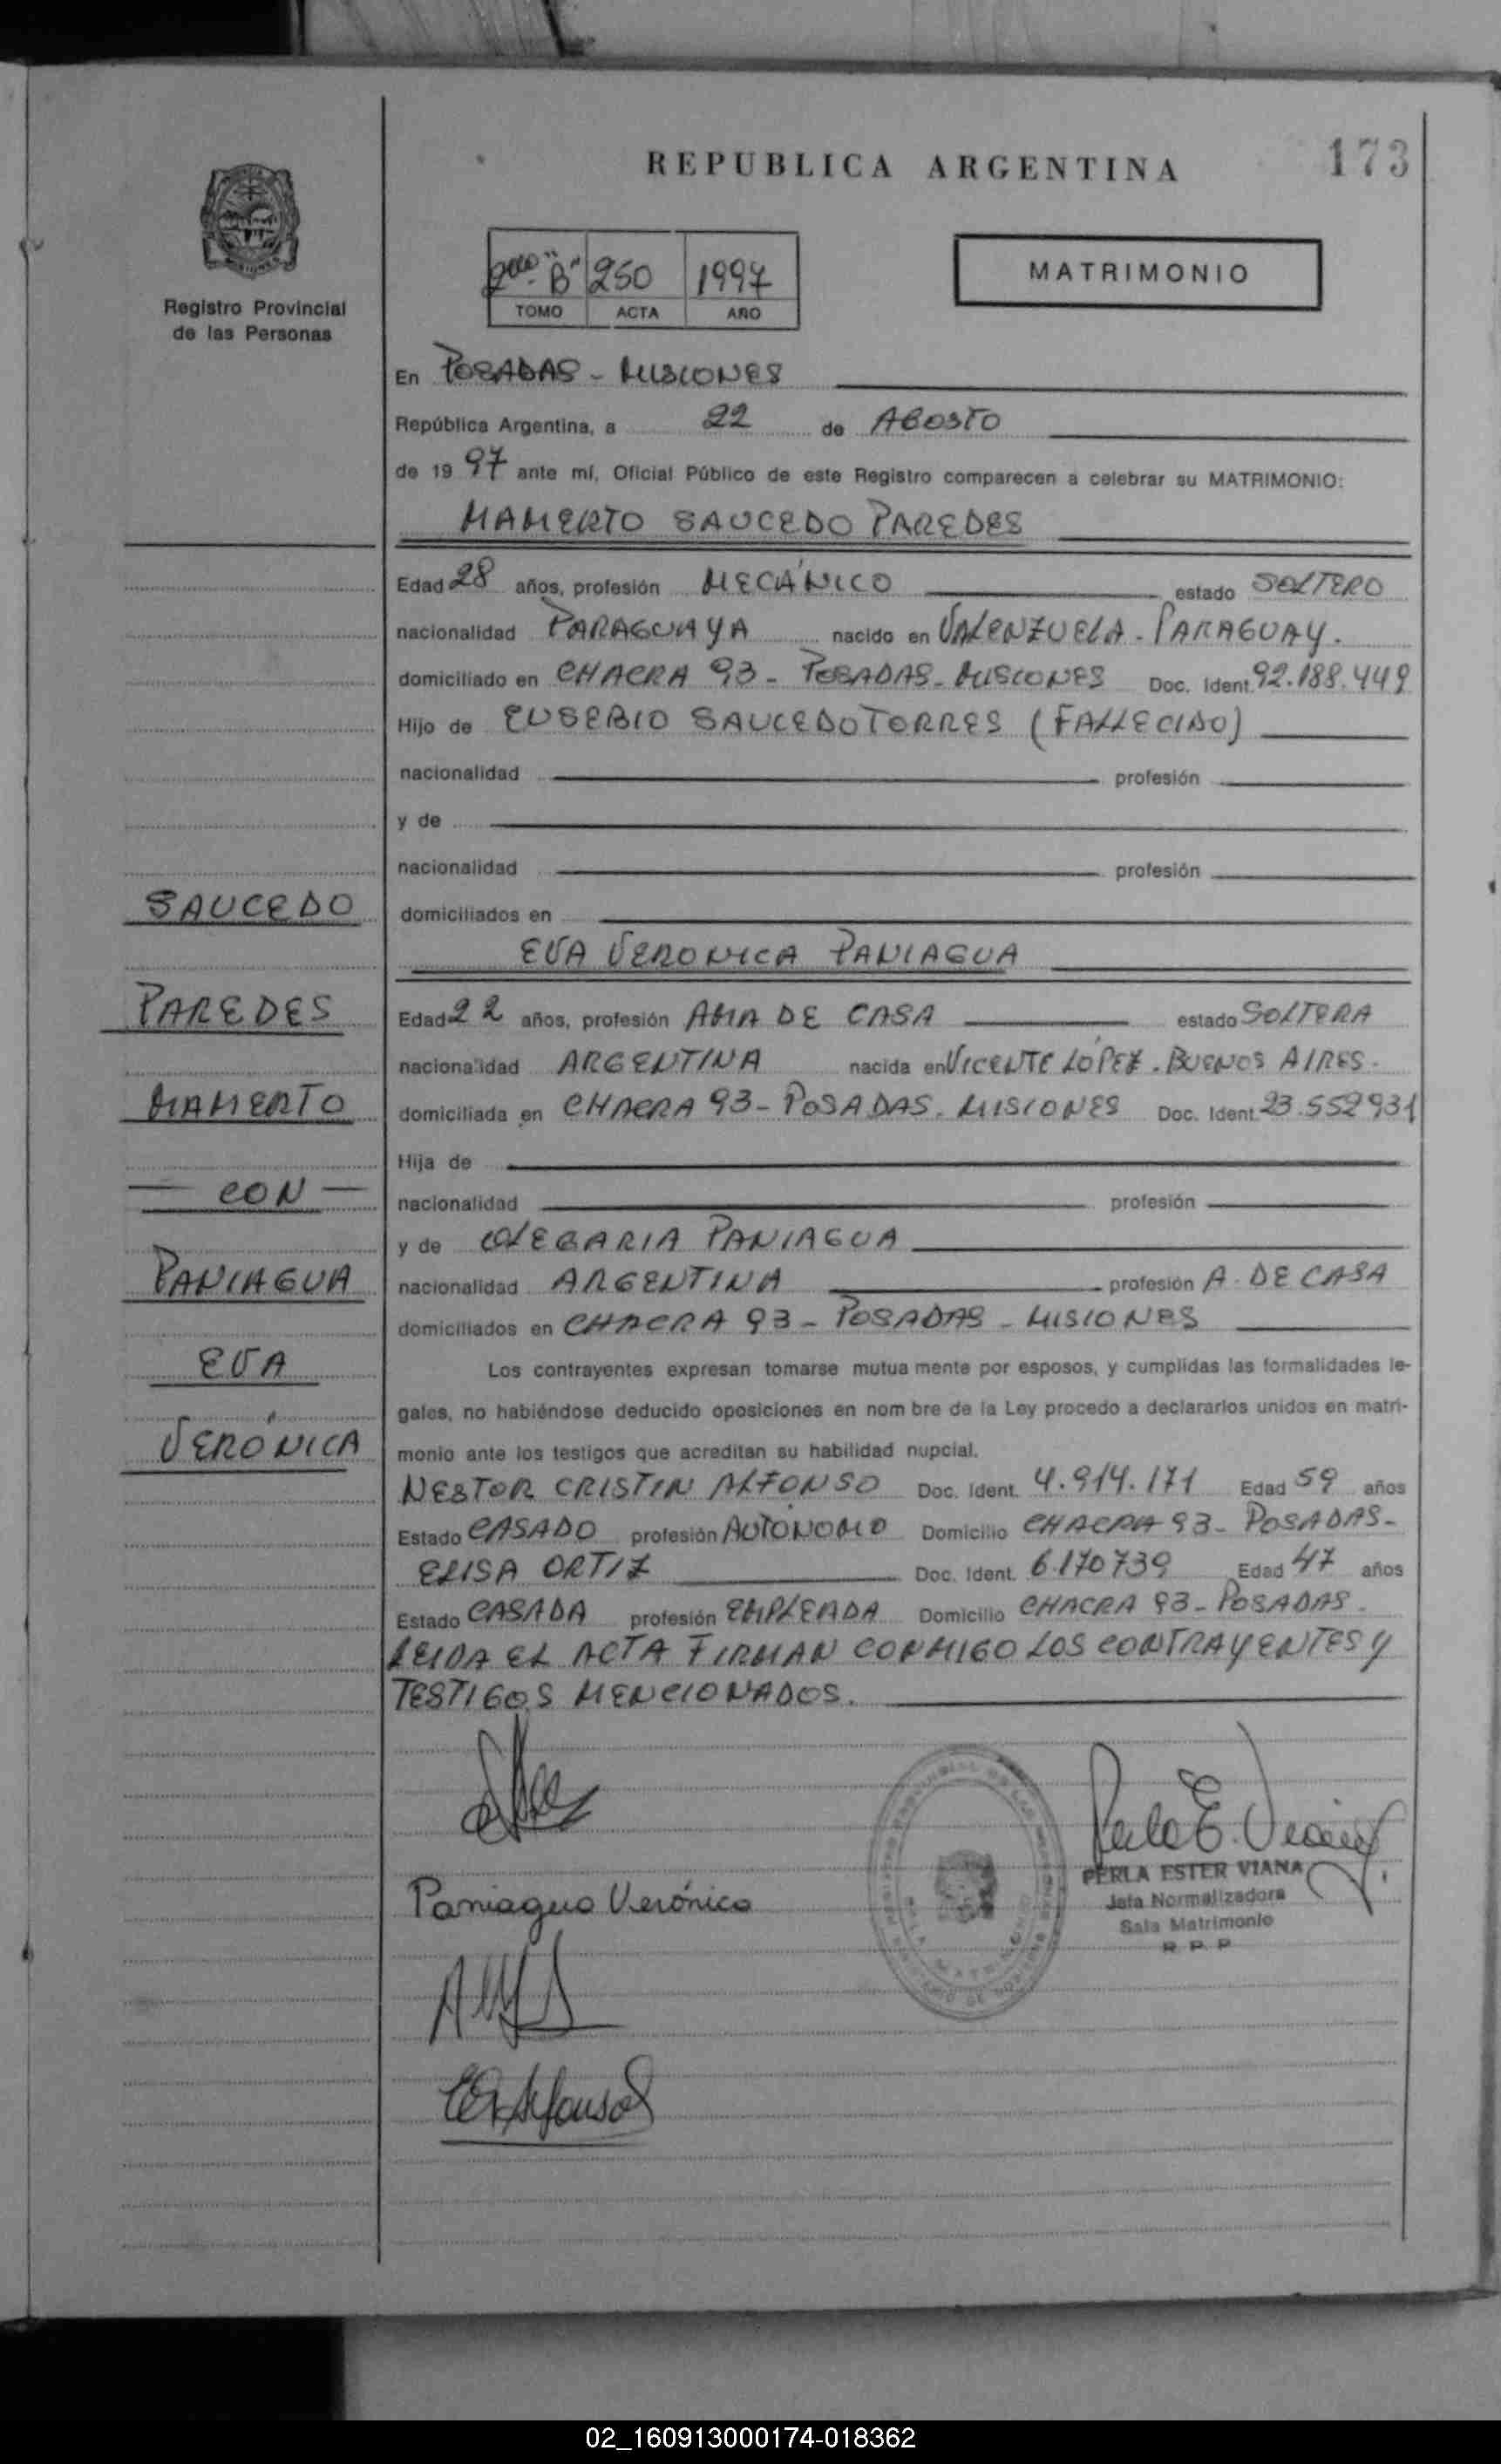 REPUBLICA ARGENTINA
173
Registro Provincial
de las Personas
2do "B" 250 1997
TOMO ACTA AÑO
MATRIMONIO
En POSADAS - MISIONES
República Argentina, a 22 de AGOSTO
de 1997 ante mí, Oficial Público de este Registro comparecen a celebrar su MATRIMONIO:
MAMERTO SAUCEDO PAREDES
Edad 28 años, profesión MECÁNICO estado SOLTERO
nacionalidad PARAGUAYA nacido en VALENZUELA - PARAGUAY.
domiciliado en CHACRA 93 - POSADAS - MISIONES Doc. Ident. 92.188.449
Hijo de EUSEBIO SAUCEDO TORRES (FALLECIDO)
nacionalidad profesión
y de
nacionalidad profesión
domiciliados en
EVA VERONICA PANIAGUA
Edad 22 años, profesión AMA DE CASA estado SOLTERA
nacionalidad ARGENTINA nacida en VICENTE LÓPEZ . BUENOS AIRES.
domiciliada en CHACRA 93 - POSADAS. MISIONES Doc. Ident. 23.552931
Hija de
nacionalidad profesión
y de OLEGARIA PANIAGUA
nacionalidad ARGENTINA profesión A. DE CASA
domiciliados en CHACRA 93 - POSADAS - MISIONES
Los contrayentes expresan tomarse mutua mente por esposos, y cumplidas las formalidades le-
gales, no habiéndose deducido oposiciones en nom bre de la Ley procedo a declararlos unidos en matri-
monio ante los testigos que acreditan su habilidad nupcial.
NESTOR CRISTIN ALFONSO Doc. Ident. 4.914.171 Edad 59 años
Estado CASADO profesión AUTÓNOMO Domicilio CHACRA 93 - POSADAS -
ELISA ORTIZ Doc. Ident. 6.170739 Edad 47 años
Estado CASADA profesión EMPLEADA Domicilio CHACRA 93 - POSADAS -
LEIDA EL ACTA FIRMAN CONMIGO LOS CONTRAYENTES Y
TESTIGOS MENCIONADOS.
SAUCEDO
PAREDES
MAMERTO
— CON —
PANIAGUA
EVA
VERÓNICA
Paniagua Verónica
Perla E. Viana
PERLA ESTER VIANA
Jefa Normalizadora
Sala Matrimonio
R. P. P.
02_160913000174-018362